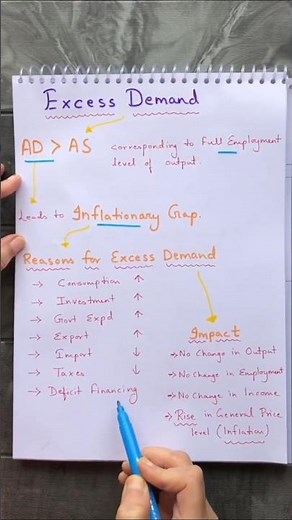 Excess Demand
AD > AS corresponding to Full Employment
level of output.
Leads to Inflationary Gap.
Reasons for Excess Demand
→ Consumption ↑
→ Investment ↑
→ Govt Expd ↑
→ Export ↑
→ Import ↓
→ Taxes ↓
→ Deficit Financing
Impact
→ No Change in Output
→ No Change in Employment
→ No Change in Income
→ Rise in General Price
level (Inflation)